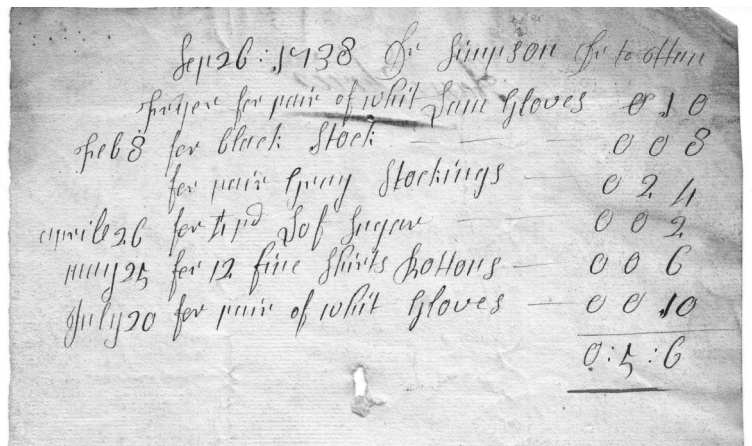 Sep 26 : 1738 Dr Simpson Dr to
for pair of whit Lam Gloves 0 1 0
Feb 8 for black Stock — — — 0 0 8
for pair Gray Stockings — 0 2 4
aprile 26 for pd Lof Sugar — — 0 0 2
may 25 for 12 fine Shirts Bottons — 0 0 6
July 20 for pair of whit Gloves — 0 0 10
0 : 5 : 6